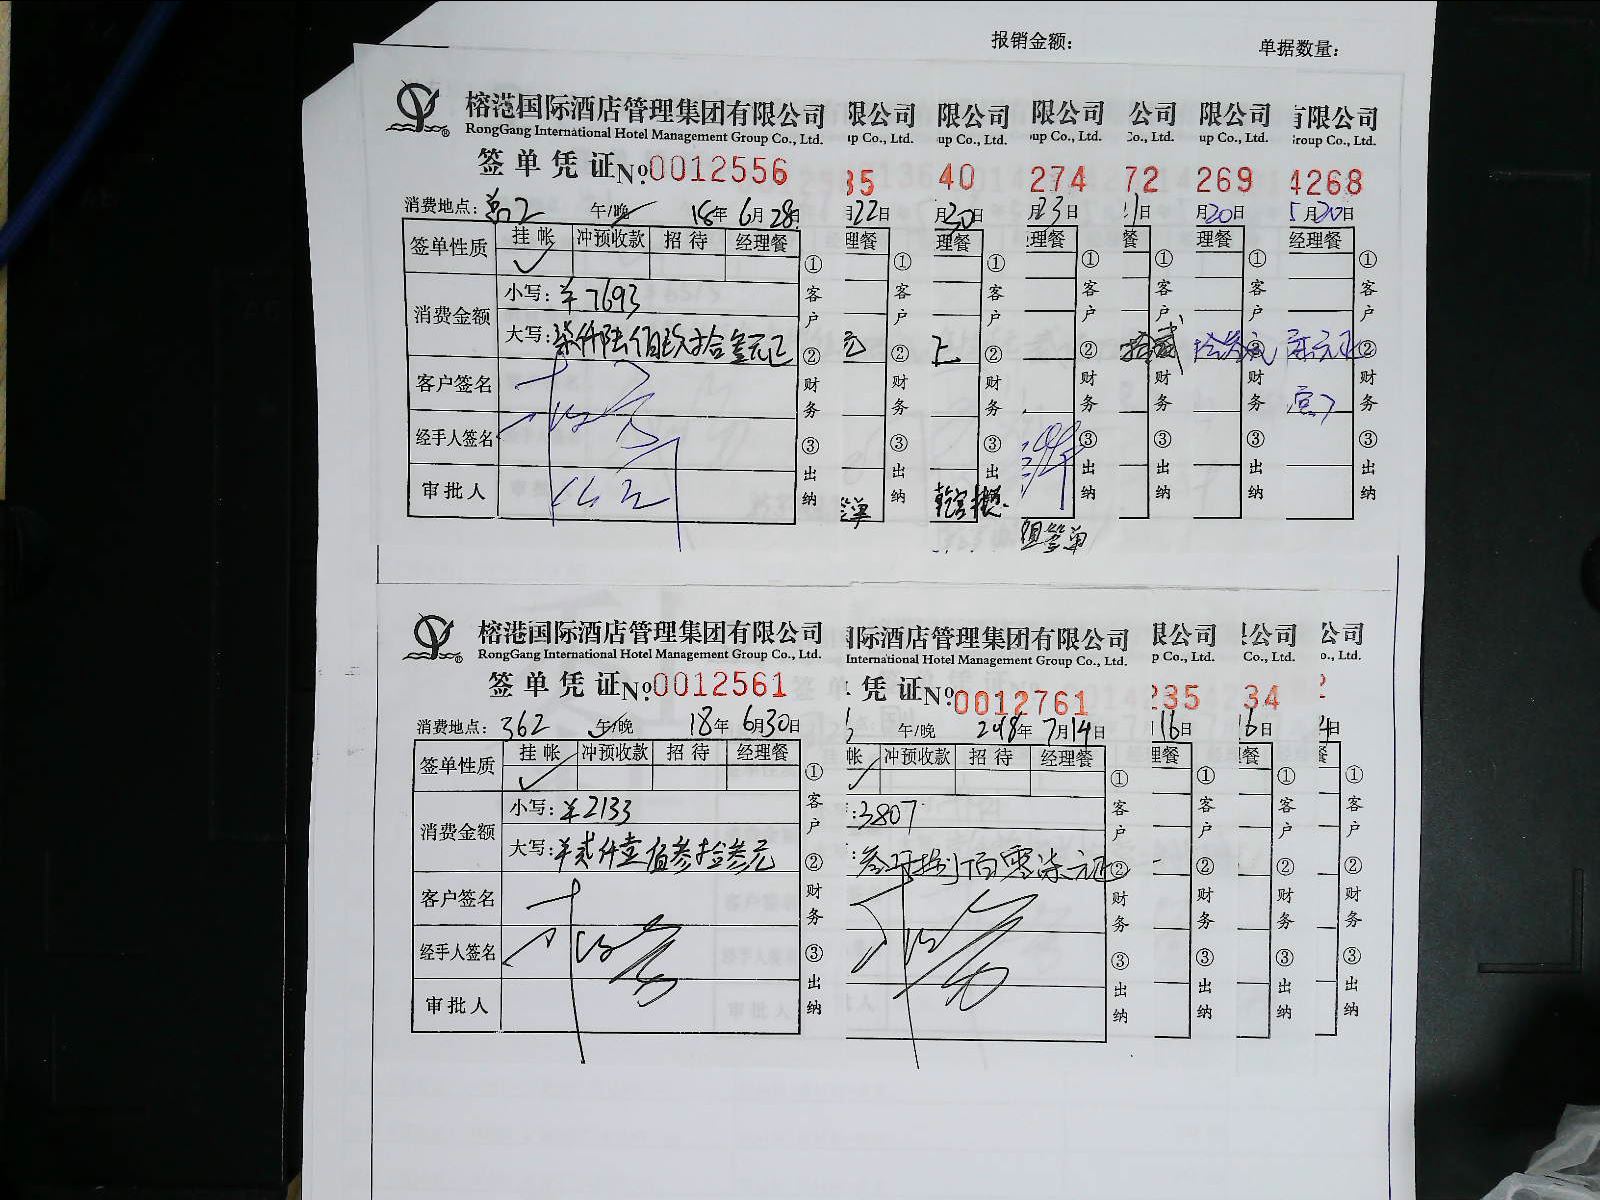 报销金额： 单据数量：
榕港国际酒店管理集团有限公司 限公司 限公司 限公司 公司 限公司 有限公司
RongGang International Hotel Management Group Co., Ltd. up Co., Ltd. up Co., Ltd. up Co., Ltd. Co., Ltd. up Co., Ltd. Group Co., Ltd.
签单凭证 No.0012556 35 40 274 72 269 4268
消费地点： 午/晚 18年6月28日 月22日 月30日 月23日 11日 月20日 5月20日
签单性质 挂帐 冲预收款 招待 经理餐 理餐 理餐 经理餐 餐 理餐 经理餐
消费金额 小写：¥7693
大写：柒仟陆佰玖拾叁元正 元
客户签名
经手人签名
审批人
签单
签单
①客户 ②财务 ③出纳
①客户 ②财务 ③出纳
①客户 ②财务 ③出纳
①客户 ②财务 ③出纳
①客户 ②财务 ③出纳
①客户 ②财务 ③出纳
①客户 ②财务 ③出纳
榕港国际酒店管理集团有限公司 国际酒店管理集团有限公司 限公司 限公司 公司
RongGang International Hotel Management Group Co., Ltd. International Hotel Management Group Co., Ltd. p Co., Ltd. Co., Ltd. o., Ltd.
签单凭证 No.0012561 凭证 No.0012761 235 34 2
消费地点：362 午/晚 18年6月30日 午/晚 2018年7月14日 16日 16日 4日
签单性质 挂帐 冲预收款 招待 经理餐 帐 冲预收款 招待 经理餐 理餐 餐 餐
消费金额 小写：¥2133 :3807
大写：¥贰仟壹佰叁拾叁元 :叁仟捌佰零柒元正
客户签名
经手人签名
审批人
①客户 ②财务 ③出纳
①客户 ②财务 ③出纳
①客户 ②财务 ③出纳
①客户 ②财务 ③出纳
①客户 ②财务 ③出纳